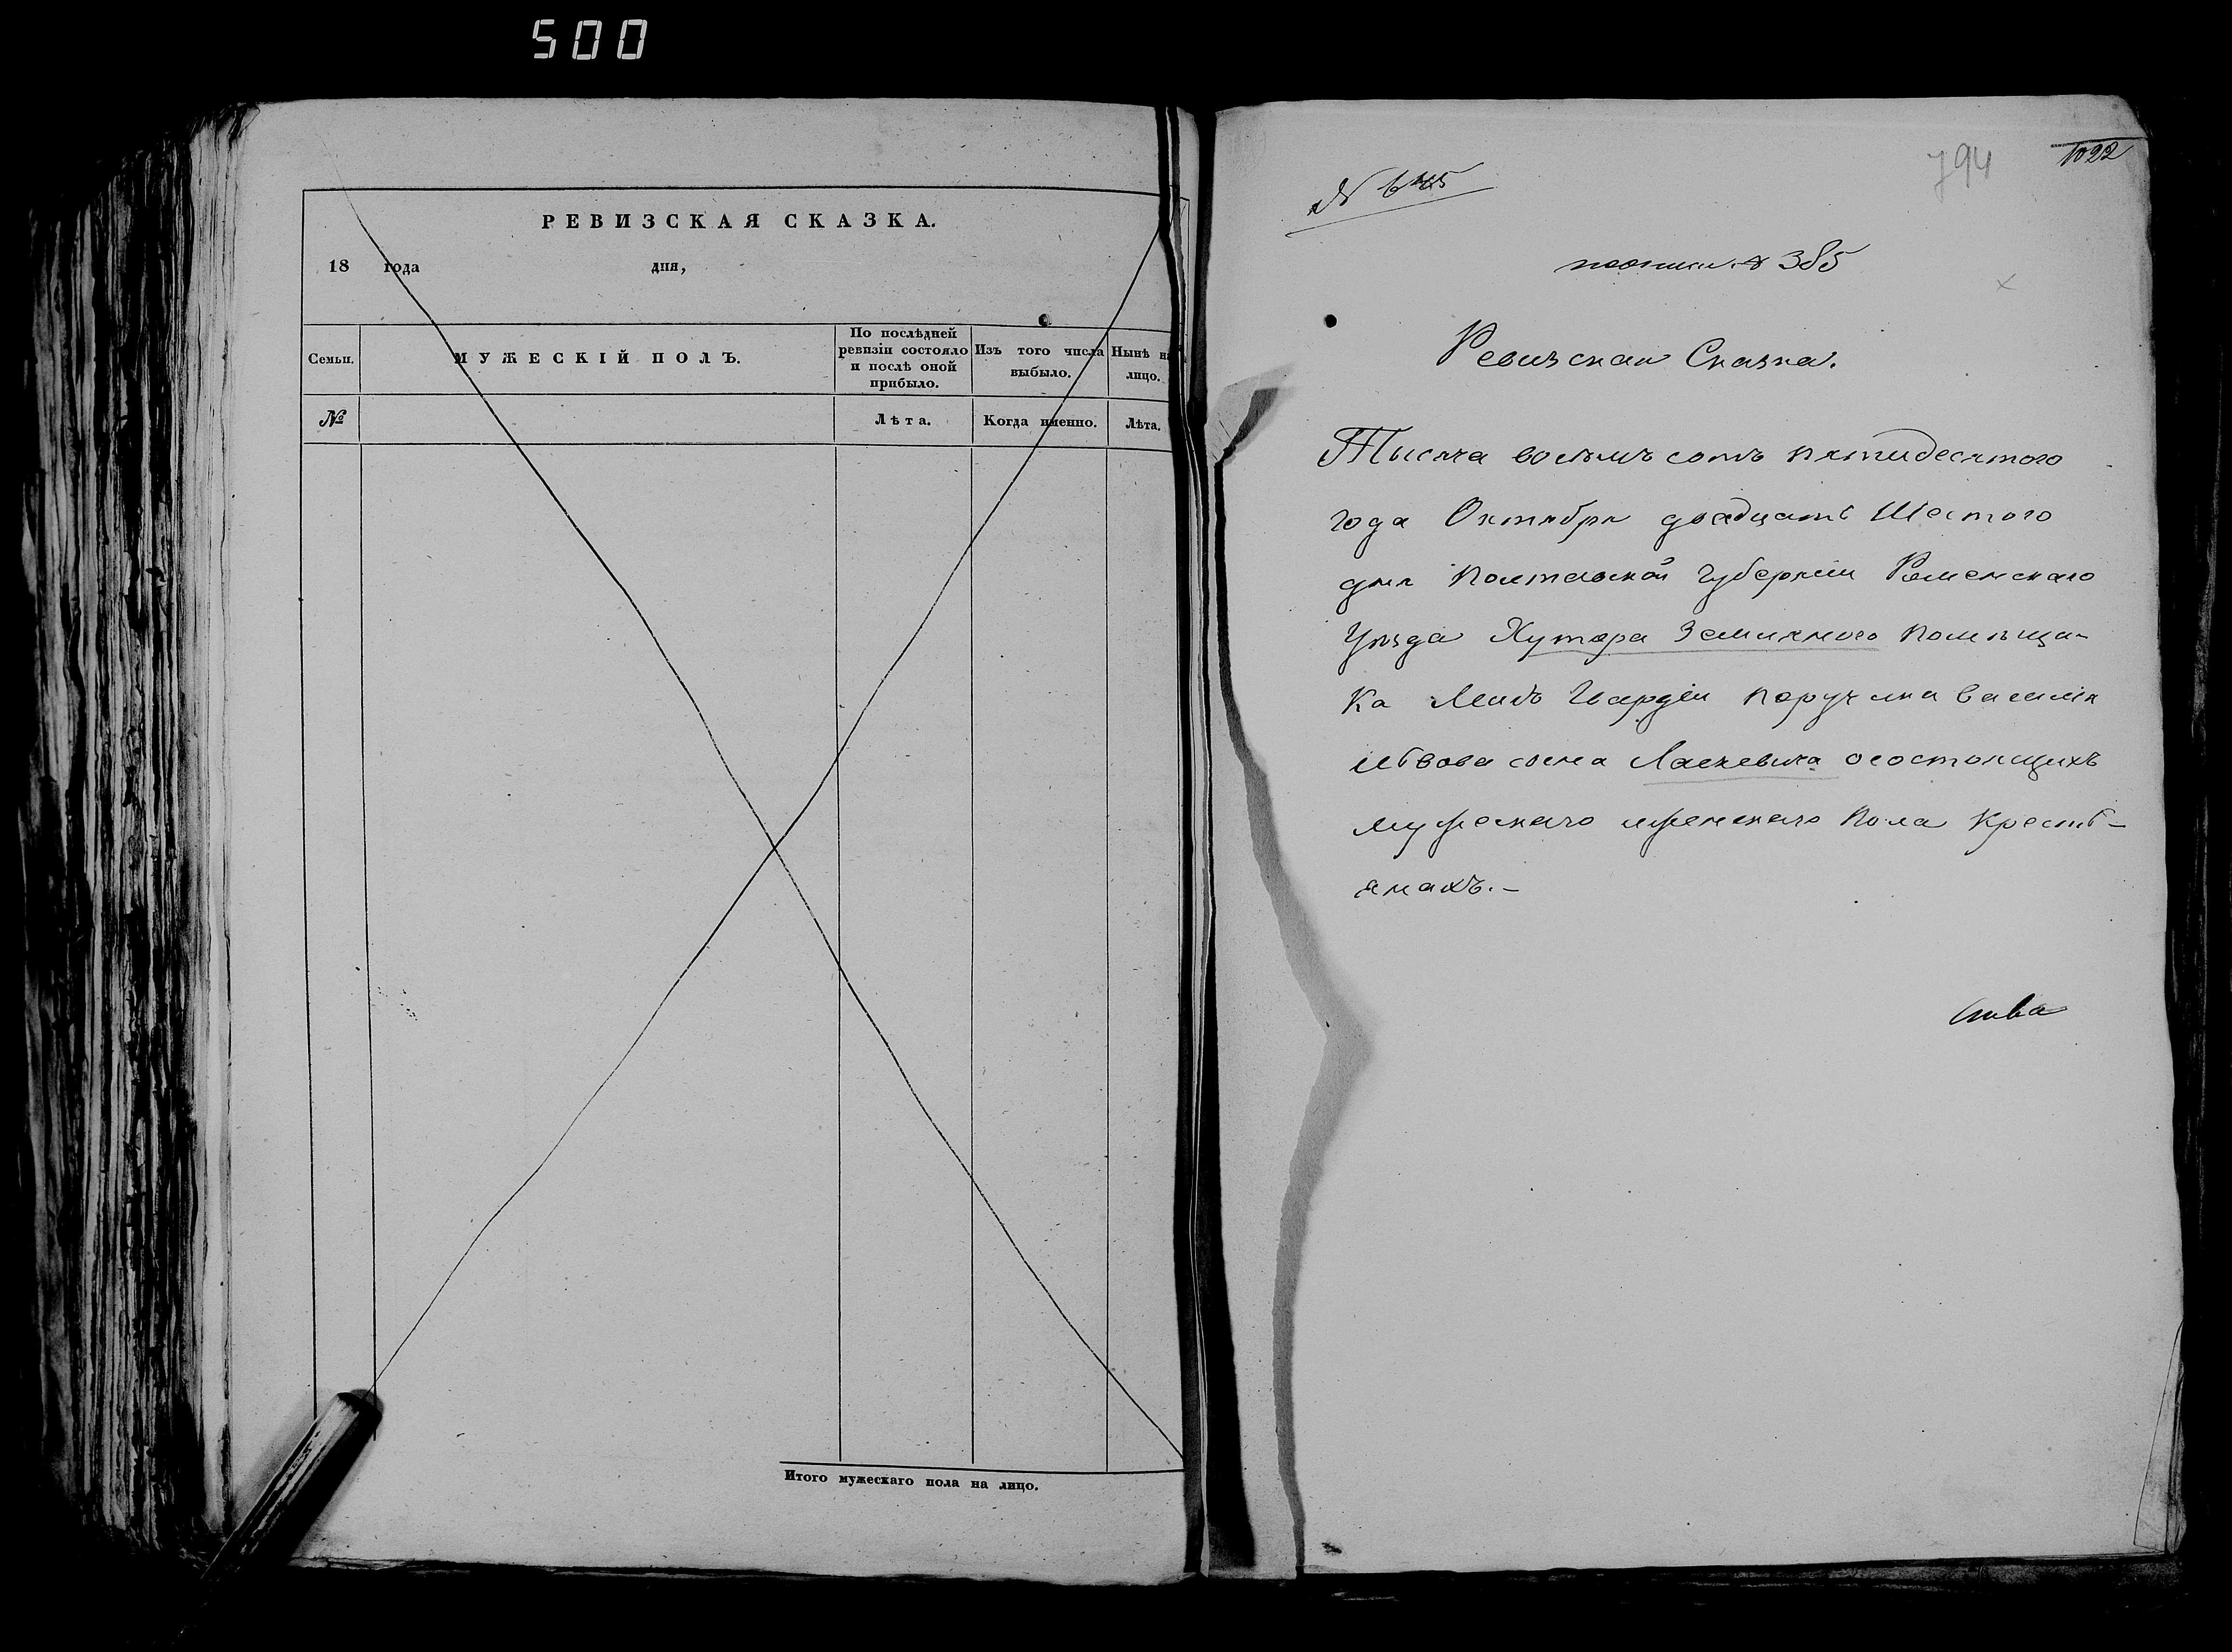 500
РЕВИЗСКАЯ СКАЗКА.
18 года дня,
Семьи.
МУЖЕСКІЙ ПОЛЪ.
По послѣдней
ревизіи состояло
и послѣ оной
прибыло.
Изъ того числа
выбыло.
Нынѣ на
лицо.
№
Лѣта.
Когда именно.
Лѣта.
Итого мужескаго пола на лицо.
794
1022
№
385
Ревизская Сказка.
Тысяча восемъ сотъ пятидесятого
года Октября двадцать Шестого
дня Полтавской Губерніи Роменскаго
Уѣзда Хутора Помѣща-
ка Лейбъ Гвардіи Поручика Василія
Львова сына Ласкевича осостоящихъ
мужескаго иженскаго Пола Кресть-
янахъ.-